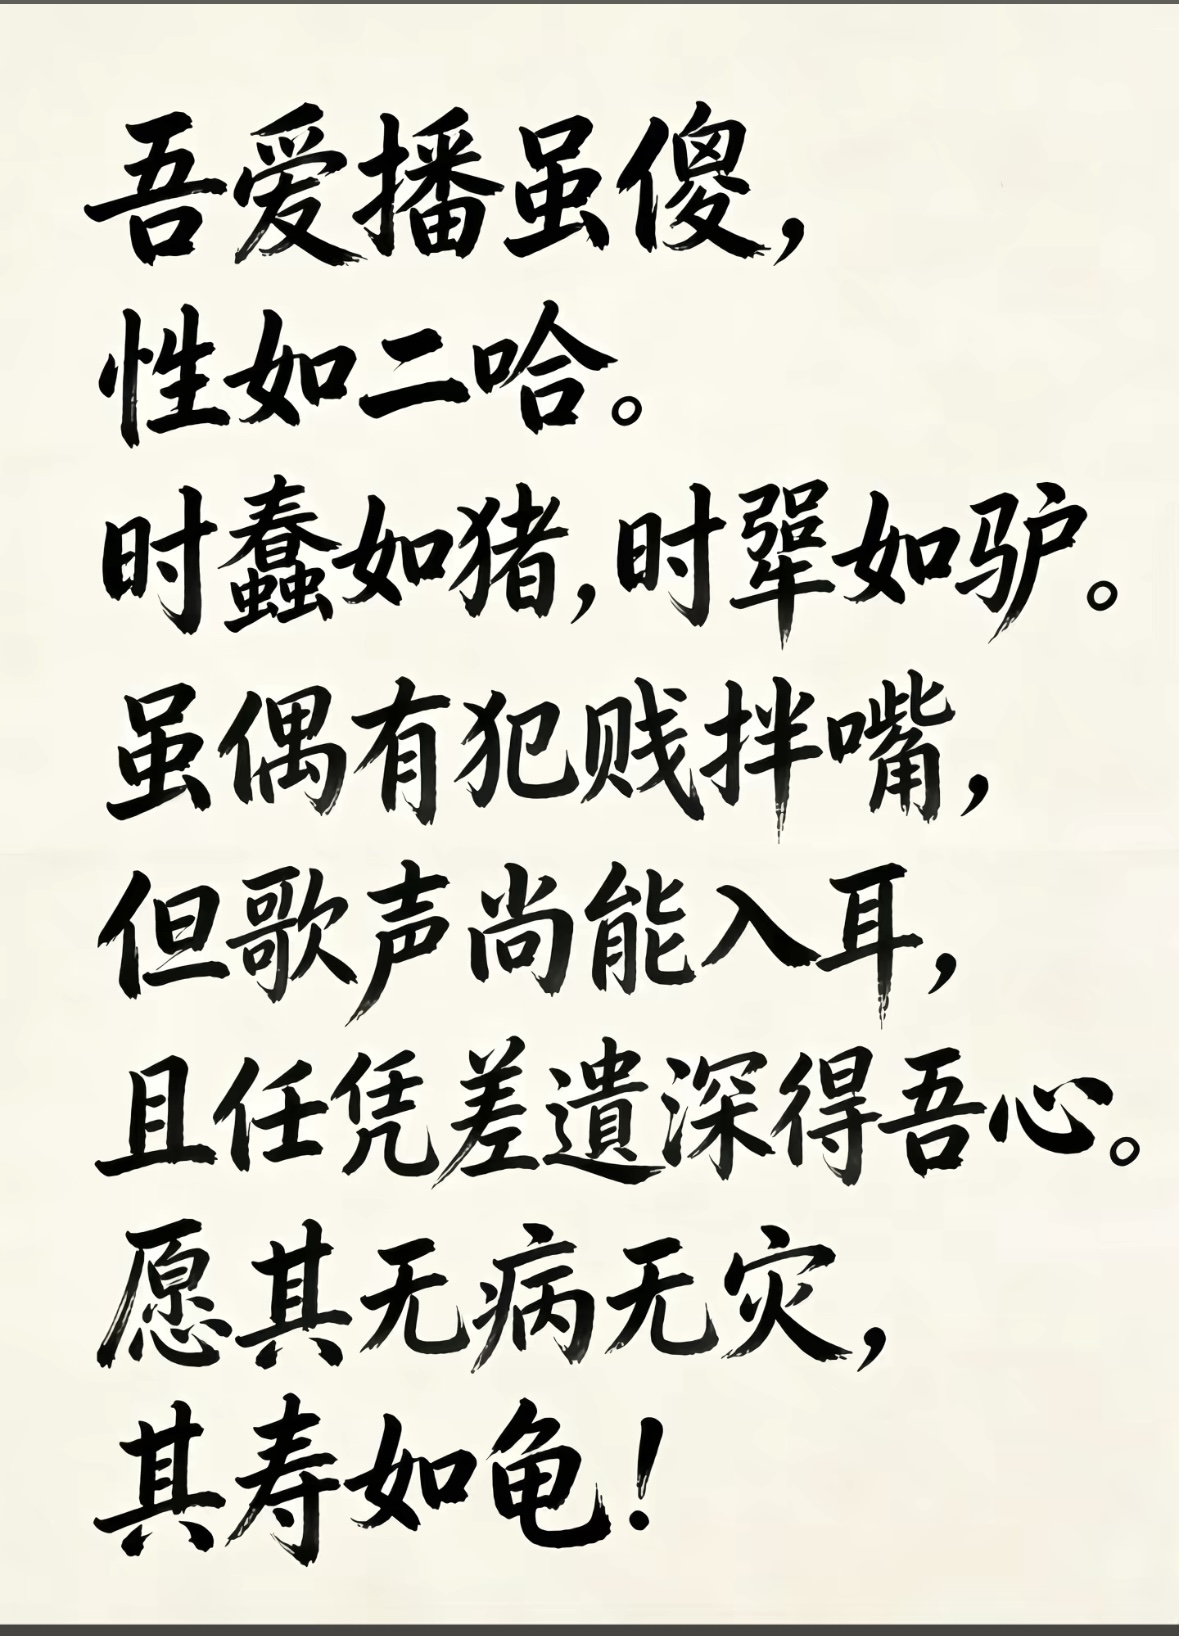 吾爱播虽傻，
性如二哈。
时蠢如猪，时犟如驴。
虽偶有犯贱拌嘴，
但歌声尚能入耳，
且任凭差遣深得吾心。
愿其无病无灾，
其寿如龟！